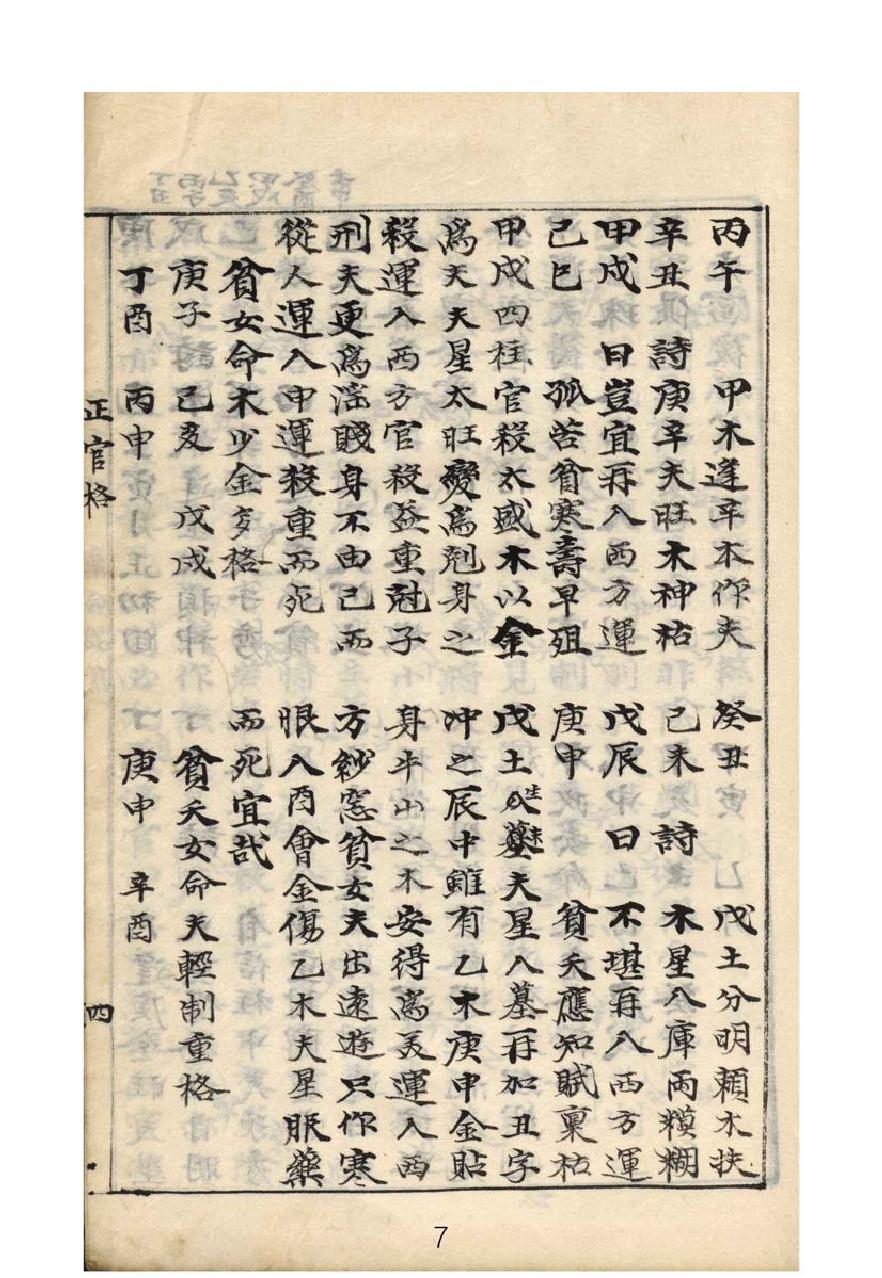 丙午　甲木逢辛本作夫
辛丑　詩　庚辛夫旺木神枯
甲戌　曰　豈宜再入西方運
己巳　孤苦貧寒壽早殂
甲戌四柱官殺太盛木以金
為夫夫星太旺變為剋身之
殺運入西方官殺益重尅子
刑夫更為淫賤身不由己而
從人運入申運殺重而死
貧女命木少金多格
庚子　己亥　戊戌
丁酉　丙申
癸丑　戊土分明賴木扶
己未　詩　木星入庫兩糢糊
戊辰　曰　不堪再入西方運
庚申　貧夭應知賦稟枯
戊土生未入墓夫星入墓再加丑字
沖之辰中雖有乙木庚申金貼
身半出之木安得為美運入西
方紗窓貧女夫出遠遊只作寒
眼入酉會金傷乙木夫星服藥
而死宜哉
貧夭女命夫輕制重格
庚申　辛酉
正官格　四
7